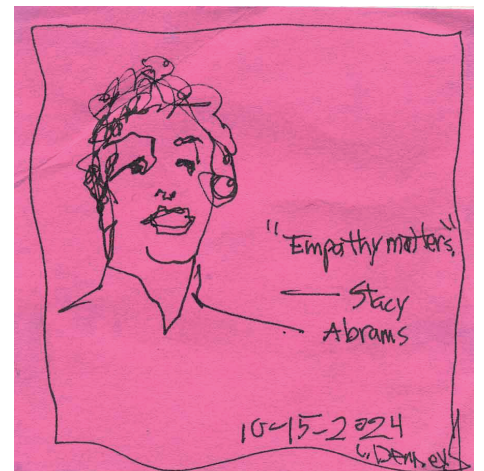 "Empathy matters,"
— Stacy
Abrams
10-15-2024